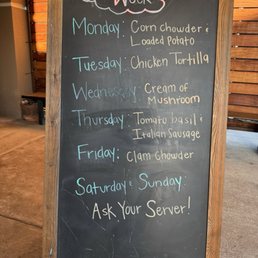 Week
Monday: Corn chowder &
Loaded Potato
Tuesday: Chicken Tortilla
Wednesday: Cream of
Mushroom
Thursday: Tomato basil &
Italian Sausage
Friday: Clam Chowder
Saturday & Sunday:
Ask Your Server!